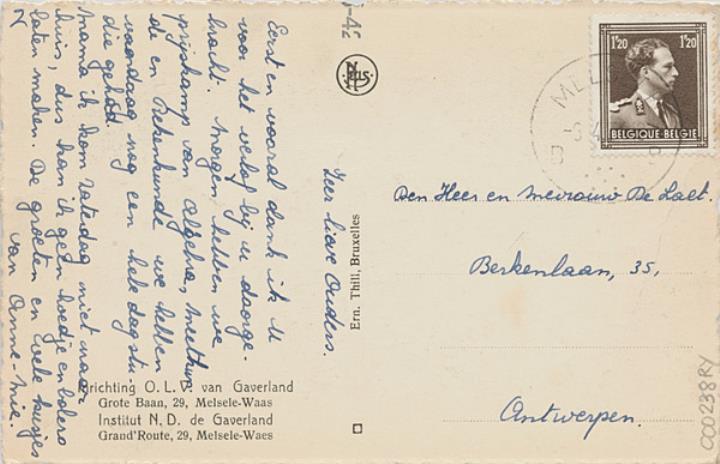 Zeer lieve Ouders.
Eerst en vooral dank ik U
voor het verlof bij u doorge-
bracht. Morgen hebben we
prijskamp van Algebra, Meetkun-
de en Rekenkunde we hebben
vandaag nog een hele dag stu-
die gehad.
Mama ik kom Zaterdag niet naar
huis, dus kan ik geen hoedje en bolero
laten maken. De groeten en Vele kusjes
van Anne-Mie.
-42
NELS
Ern. Thill, Bruxelles
richting O. L. V. van Gaverland
Grote Baan, 29, Melsele-Waas
Institut N. D. de Gaverland
Grand'Route, 29, Melsele-Waes
1F20 1F20
BELGIQUE-BELGIE
Den Heer en mevrouw De Laet.
Berkenlaan, 35,
Antwerpen.
COO238RY